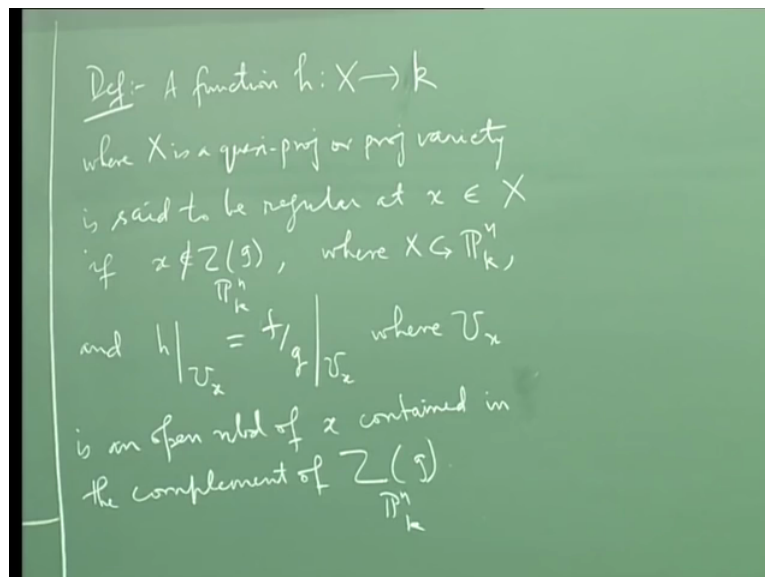 Def:- A function h: X → k
where X is a quasi-proj or proj variety
is said to be regular at x ∈ X
if x ∉ Z(g), where X ↪ ℙⁿₖ,
ℙⁿₖ
and h|_{U_x} = f/g|_{U_x} where U_x
is an open nbd of x contained in
the complement of Z(g).
ℙⁿₖ